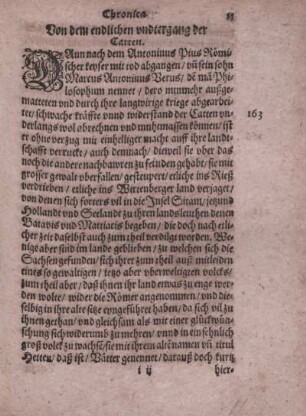 Chronica. 81
Von dem endlichen vndtergang der
Catten.
DAnn nach dem Antoninus Pius Römi-
scher keyser mit tod abgangen / vñ sein sohn
Marcus Antonius Verus / dē mā Phi-
losophum nennet / dero nunmehr außge-
matteten vnd durch ihre langwirige kriege abgearbei-
teter / schwache kräffte vnnd widerstand der Catten vn-
derlangs wol obrechnen vnd muthmassen können / ist
er ohne verzug mit einhelliger macht auff ihre land-
schafft verruckt / auch demnach / dieweil sie vber das
noch die andere nachbawrten zu feinden gehabt / sie mit
grosser gewalt vberfallen / gesteupert / etliche ins Rieß
verdrieben / etliche ins Wirtenberger land verjaget /
von denen sich fortters vil in die Insel Sitam / jetzund
Hollandt vnd Seelandt zu ihren landsleuthen denen
Batavis vnd Mattiacis begeben / die doch nach etli-
cher zeit daselbst auch zum theil verdilgt worden. We-
nige aber sind im lande geblieben / zu welchen sich die
Sachsen gefunden / sich ihrer zum theil auß mitleiden
eines so gewaltigen / jetzo aber vberweltigten volcks /
zum theil aber / daß ihnen ihr land etwas zu enge wer-
den wolte / wider die Römer angenommen / vnd die-
selbig in ihre alte sitze eyngeführet haben / da sich vil zu
ihnen gethan / vnd gleichsam als mit einer glückwün-
schung sich widerumb zu mehren / vnnd in ein sehnlich
groß volck zu wachsē / sie mit ihrem alten namen vñ titul
Hetten / daß ist / Vätter genennet / darauß doch kurtz
i ij hier-
163